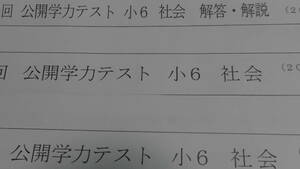 回 公開学力テスト 小6 社会 解答・解説 (2
回 公開学力テスト 小6 社会 (20
公開学力テスト 小6 社会